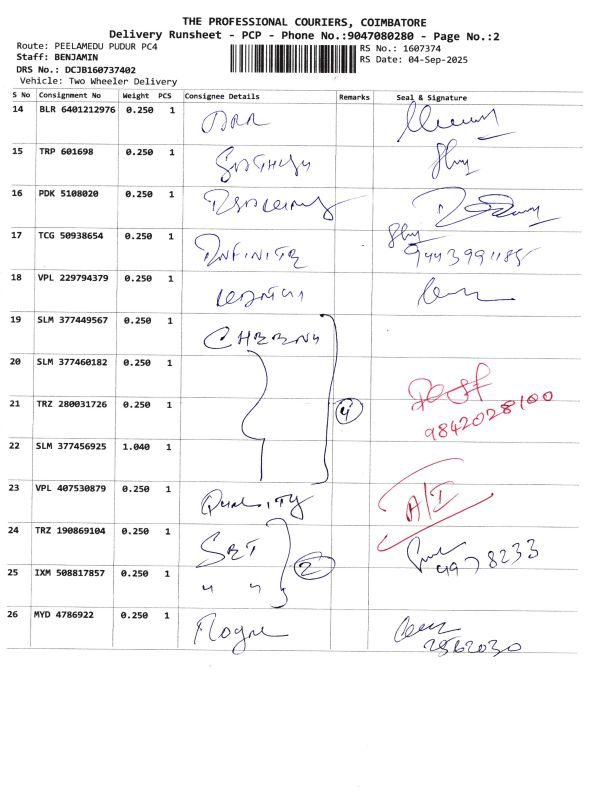 THE PROFESSIONAL COURIERS, COIMBATORE
Delivery Runsheet - PCP - Phone No.:9047080280 - Page No.:2
Route: PEELAMEDU PUDUR PC4
RS No.: 1607374
Staff: BENJAMIN
RS Date: 04-Sep-2025
DRS No.: DCJB160737402
Vehicle: Two Wheeler Delivery
S No Consignment No Weight PCS Consignee Details Remarks Seal & Signature
14 BLR 6401212976 0.250 1
15 TRP 601698 0.250 1
16 PDK 5108020 0.250 1
17 TCG 50938654 0.250 1 INFINITE
18 VPL 229794379 0.250 1
19 SLM 377449567 0.250 1
20 SLM 377460182 0.250 1
21 TRZ 280031726 0.250 1 4 9842028100
22 SLM 377456925 1.040 1
23 VPL 407530879 0.250 1 QUALITY A/I
24 TRZ 190869104 0.250 1
25 IXM 508817857 0.250 1 " " 2
26 MYD 4786922 0.250 1